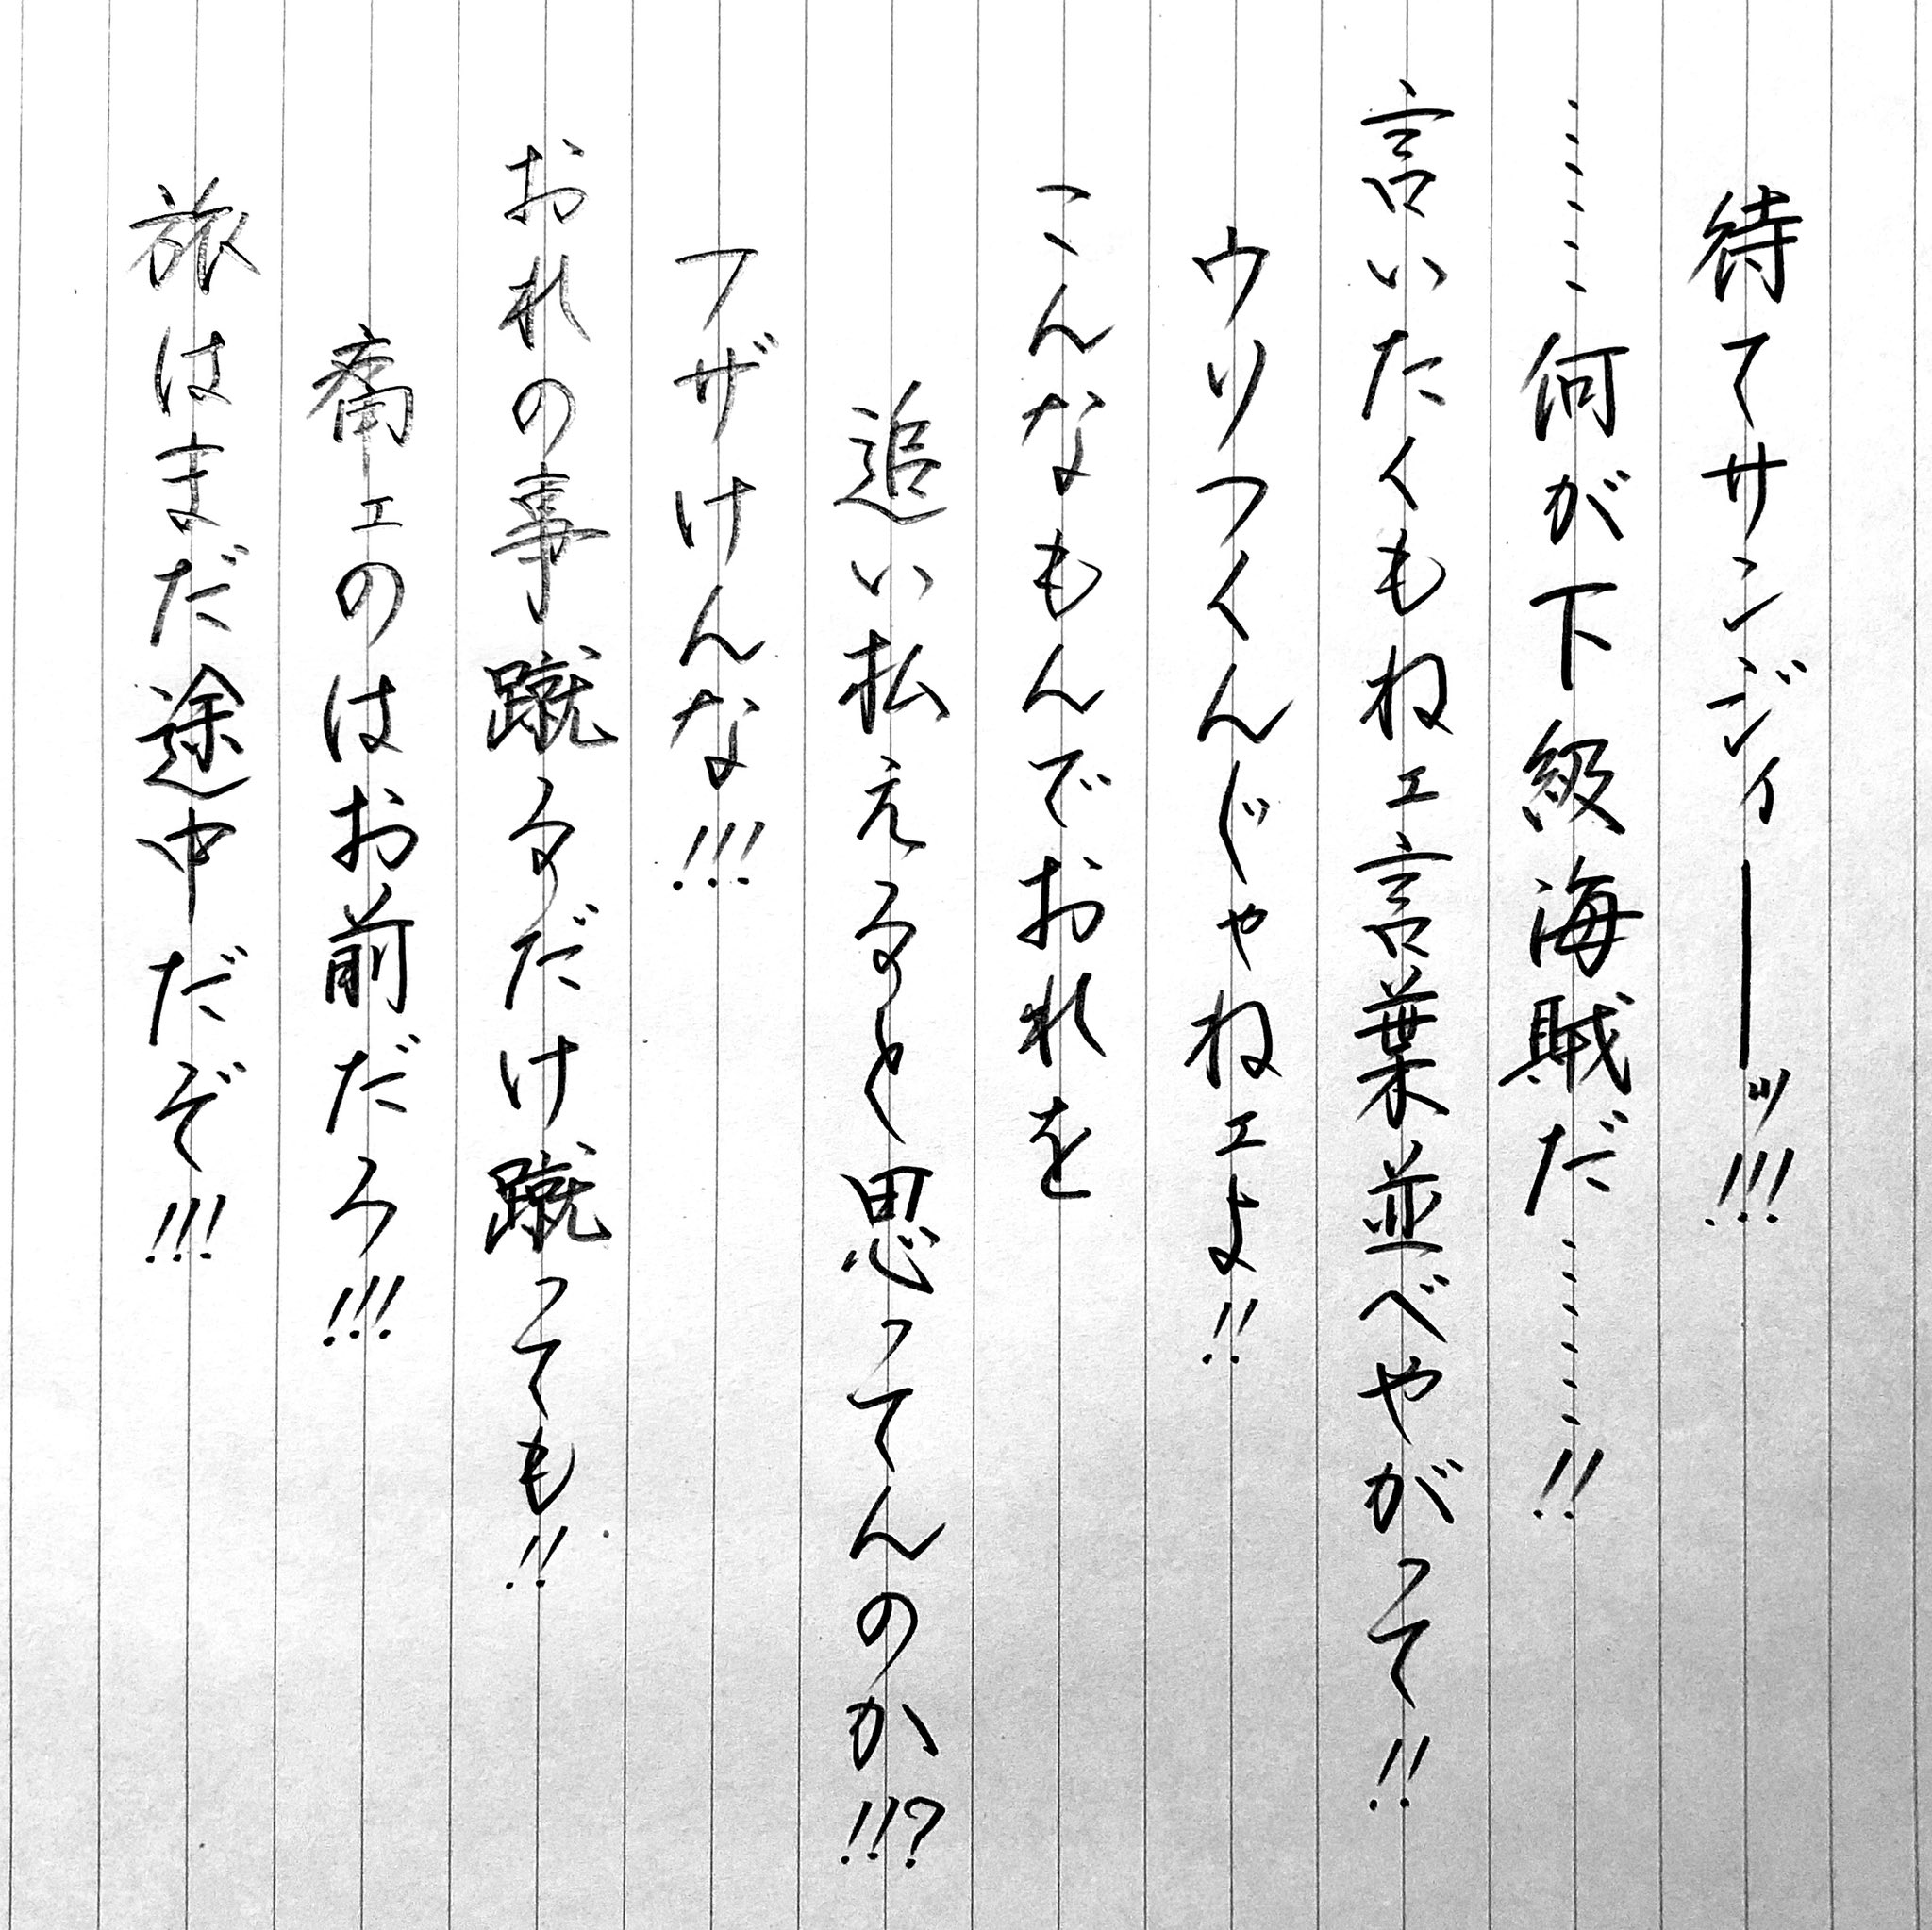 待てサンジィーーッ!!!
……何が下級海賊だ……!!
言いたくもねェ言葉並べやがって!!
ウソつくんじゃねェよ!!
こんなもんでおれを
追い払えると思ってんのか!!?
フザけんな!!!
おれの事蹴るだけ蹴っても!!
痛ェのはお前だろ!!!
旅はまだ途中だぞ!!!